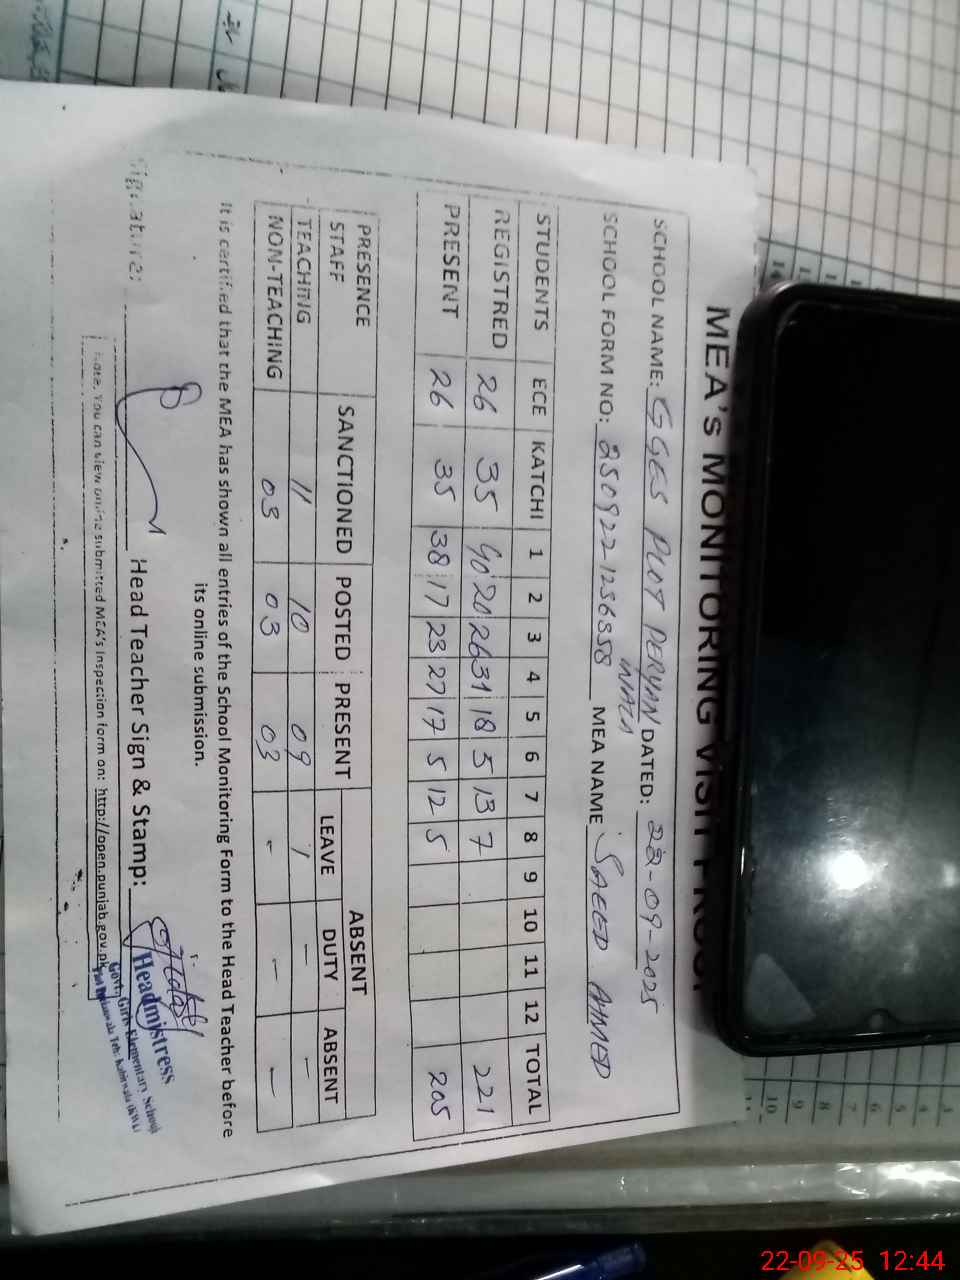 MEA's MONITORING VISIT PROOF
SCHOOL NAME: GGES PLOT PERYAN WALA DATED: 22-09-2025
SCHOOL FORM NO: MEA NAME SAEED AHMED
STUDENTS ECE KATCHI 1 2 3 4 5 6 7 8 9 10 11 12 TOTAL
REGISTRED 26 35 40 20 26 31 18 5 13 7 221
PRESENT 26 35 38 17 23 27 17 5 12 5 205
PRESENCE ABSENT
STAFF SANCTIONED POSTED PRESENT LEAVE DUTY ABSENT
TEACHING 11 10 09 1 - -
NON-TEACHING 03 03 03 - - -
It is certified that the MEA has shown all entries of the School Monitoring Form to the Head Teacher before
its online submission.
Signature: Head Teacher Sign & Stamp:
Headmistress
Govt. Girls Elementary School
Note. You can view online submitted MEA's Inspection form on: http://open.punjab.gov.pk
22-09-25 12:44